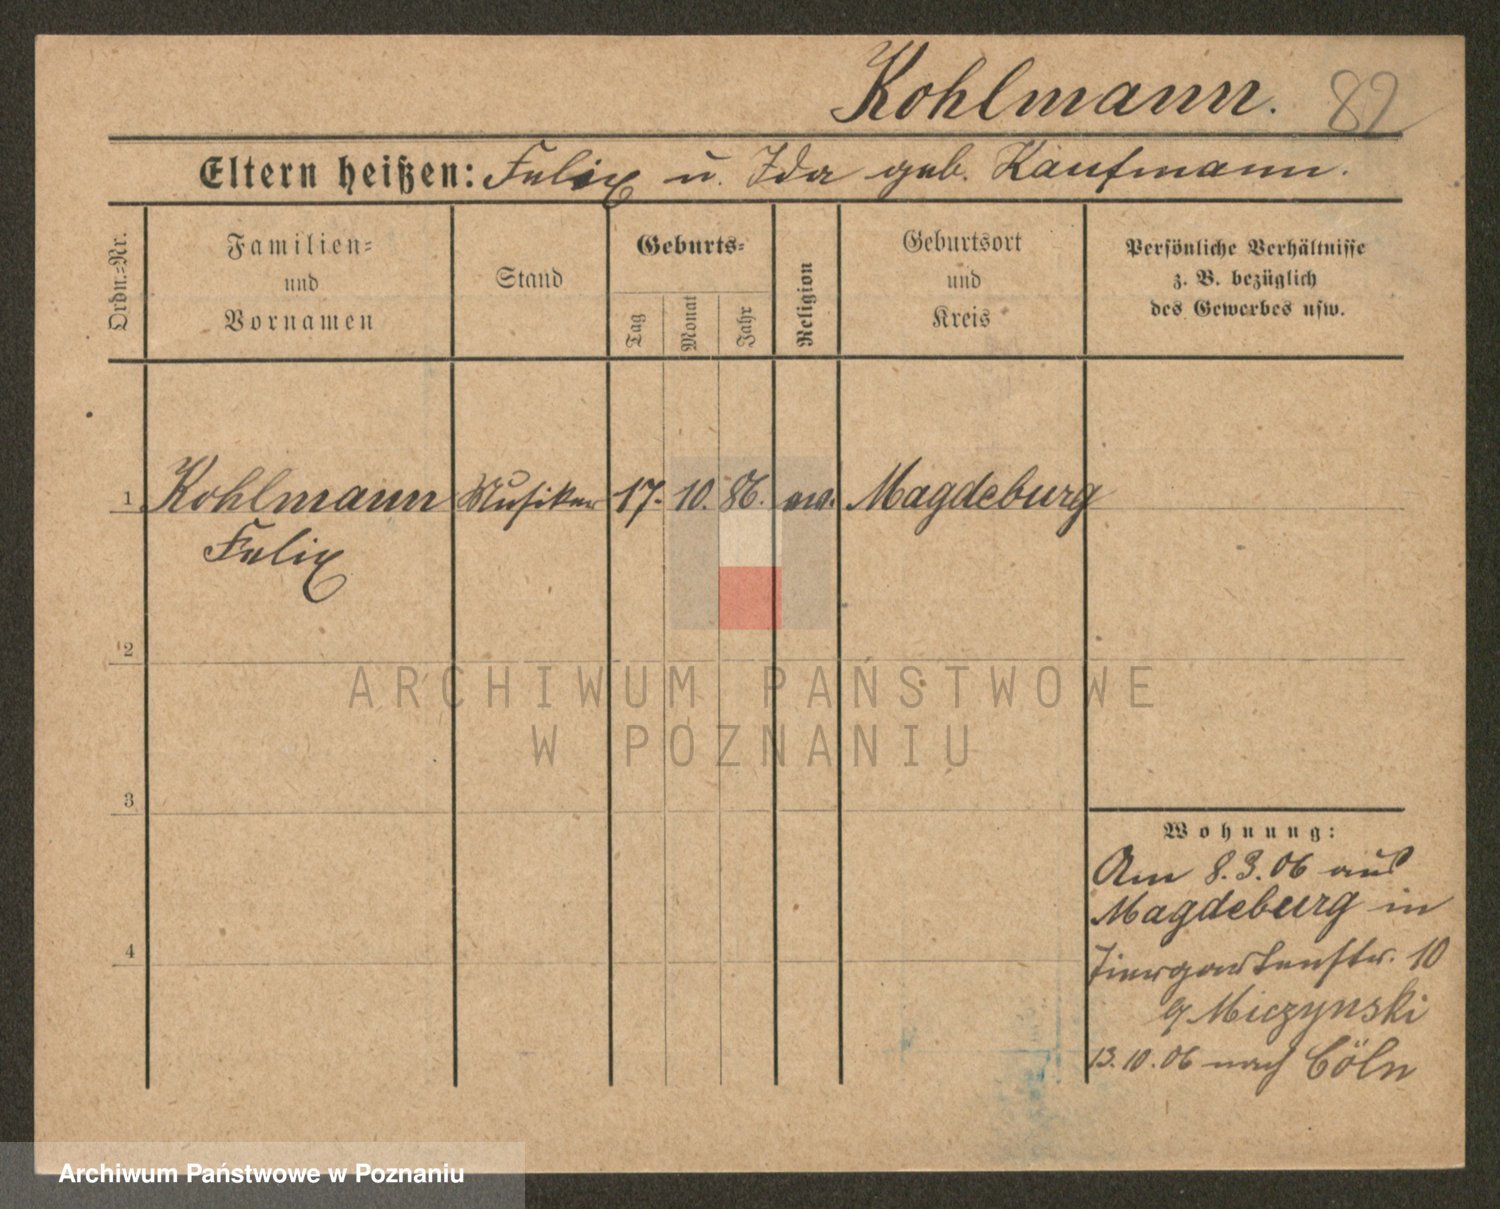 Kohlmann. 82
Eltern heißen: Felix u. Ida geb. Kaufmann.
Ordn.=Nr.
Familien=
und
Vornamen
Stand
Geburts=
Tag
Monat
Jahr
Religion
Geburtsort
und
Kreis
Persönliche Verhältnisse
z. B. bezüglich
des Gewerbes usw.
1 Kohlmann Musiker 17. 10. 86. ev. Magdeburg
Felix
2
3
4
Wohnung:
Am 8.3.06 aus
Magdeburg in
Tiergartenstr. 10
Miczynski
13.10.06 nach Cöln
ARCHIWUM PAŃSTWOWE
W POZNANIU
Archiwum Państwowe w Poznaniu